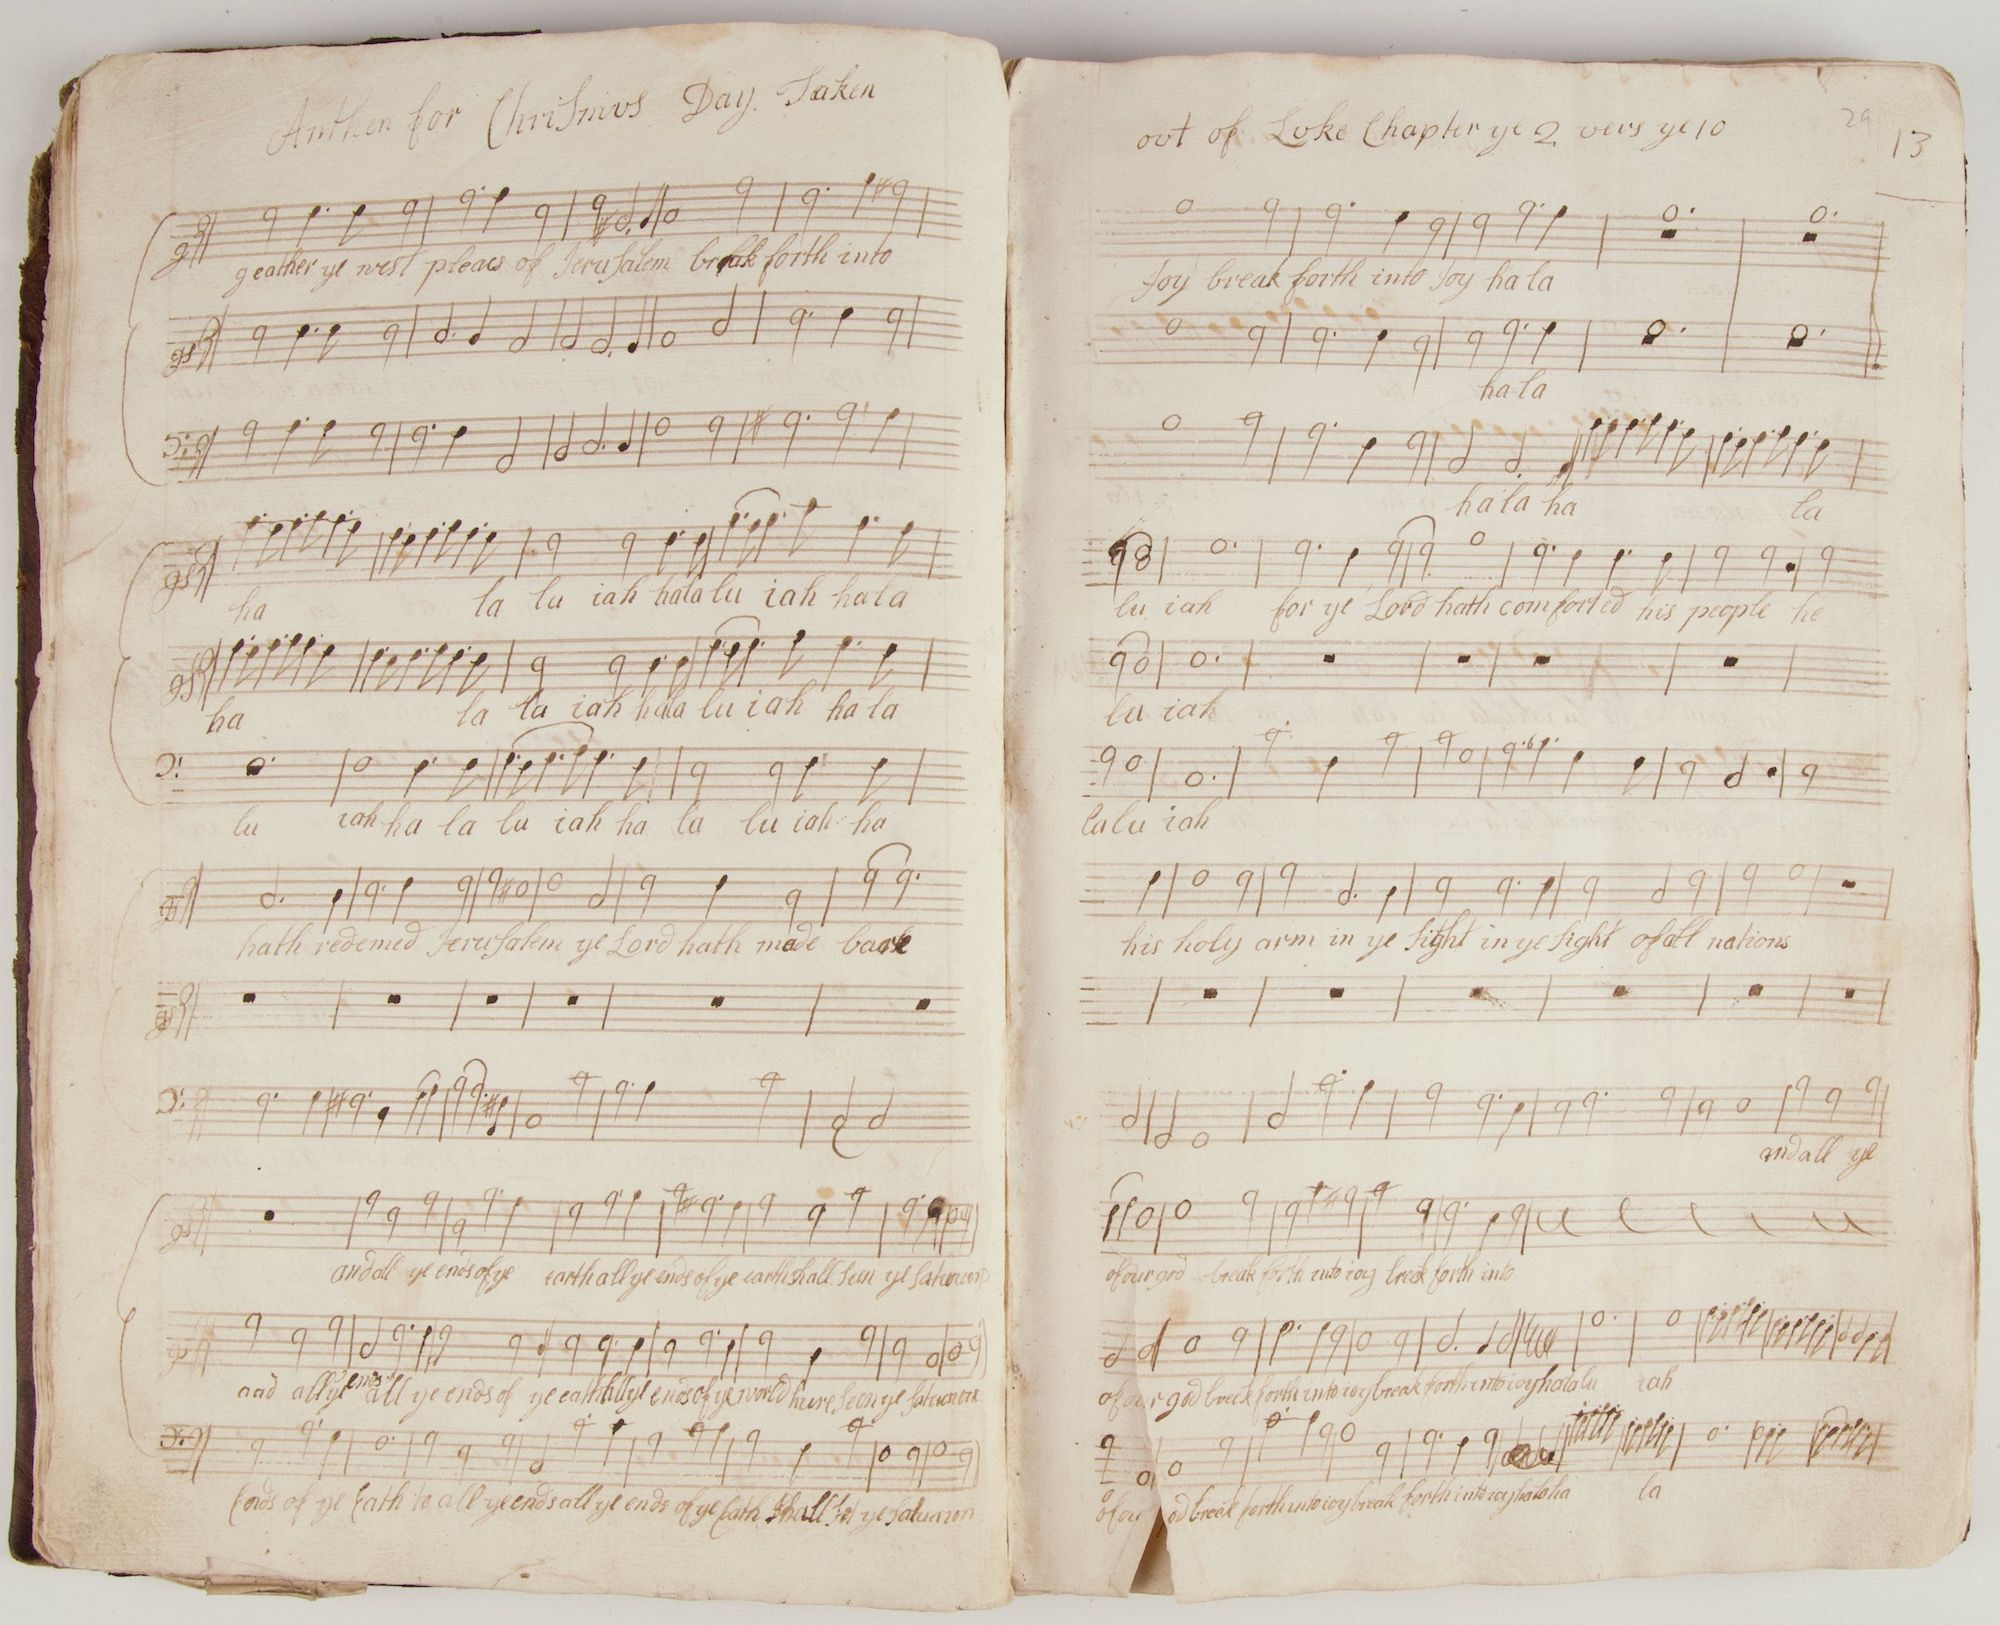 Anthen for Chrismvs Day. Taken
geather ye west pleacs of Jerusalem break forth into
ha la lu iah hala lu iah hala
ha la lu iah hala lu iah ha la
lu iah ha la lu iah ha la lu iah ha
hath redemed Jerusalem ye Lord hath made bare
and all ye ends of ye earth all ye ends of ye earth shall seen ye
and all ye ends all ye ends of ye earth all ye ends of ye world have seen ye
Eends of ye Eath to all ye ends all ye ends of ye Eath shall ye
ovt of Lvke Chapter ye 2 vers ye 10
29
13
Joy break forth into Joy ha la
ha la
ha la ha la
lu iah for ye Lord hath comforted his people he
lu iah
la lu iah
his holy arm in ye sight in ye sight of all nations
and all ye
of our god break forth into ioy breek forth into
of our god breek forth into ioy break forth into ioy ha la lu iah
of our od breek forth into ioy break forth into ioy ha la ha la